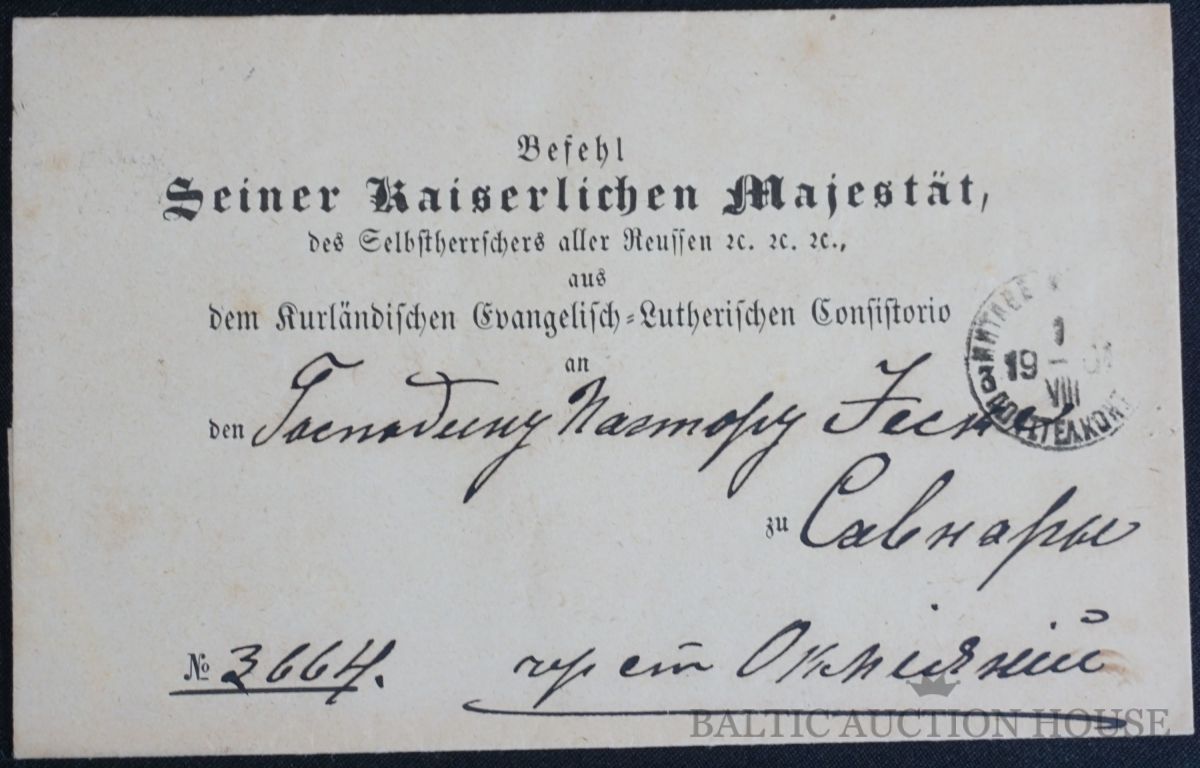 Befehl
Seiner Kaiserlichen Majestät,
des Selbstherrschers aller Reussen ꝛc. ꝛc. ꝛc.,
aus
dem Kurländischen Evangelisch-Lutherischen Consistorio
an
den Господину Пастору
zu
№ 3664. чр ст Окмiянiй
19 1 VIII
BALTIC AUCTION HOUSE